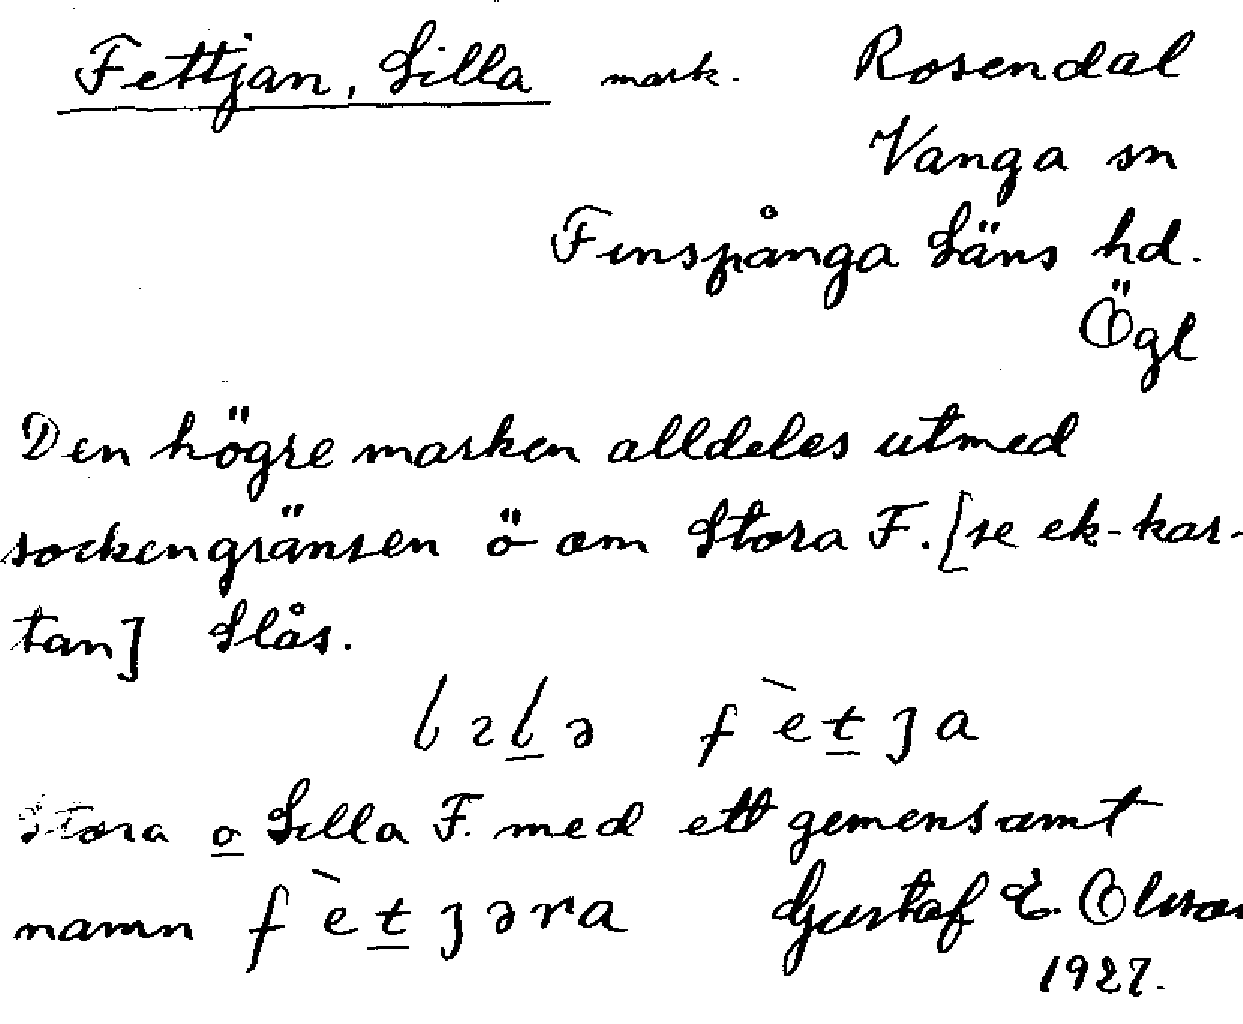 Fettjan, Lilla mark. Rosendal
Vånga sn
Finspånga läns hd.
Ögl
Den högre marken alldeles utmed
sockengränsen ö om Stora F. [se ek-kar-
tan] Slås.
lɩl̲ə fèt̲ȷa
Stora o̲ Lilla F. med ett gemensamt
namn fèt̲ȷəra Gustaf E. Olsson
1927.